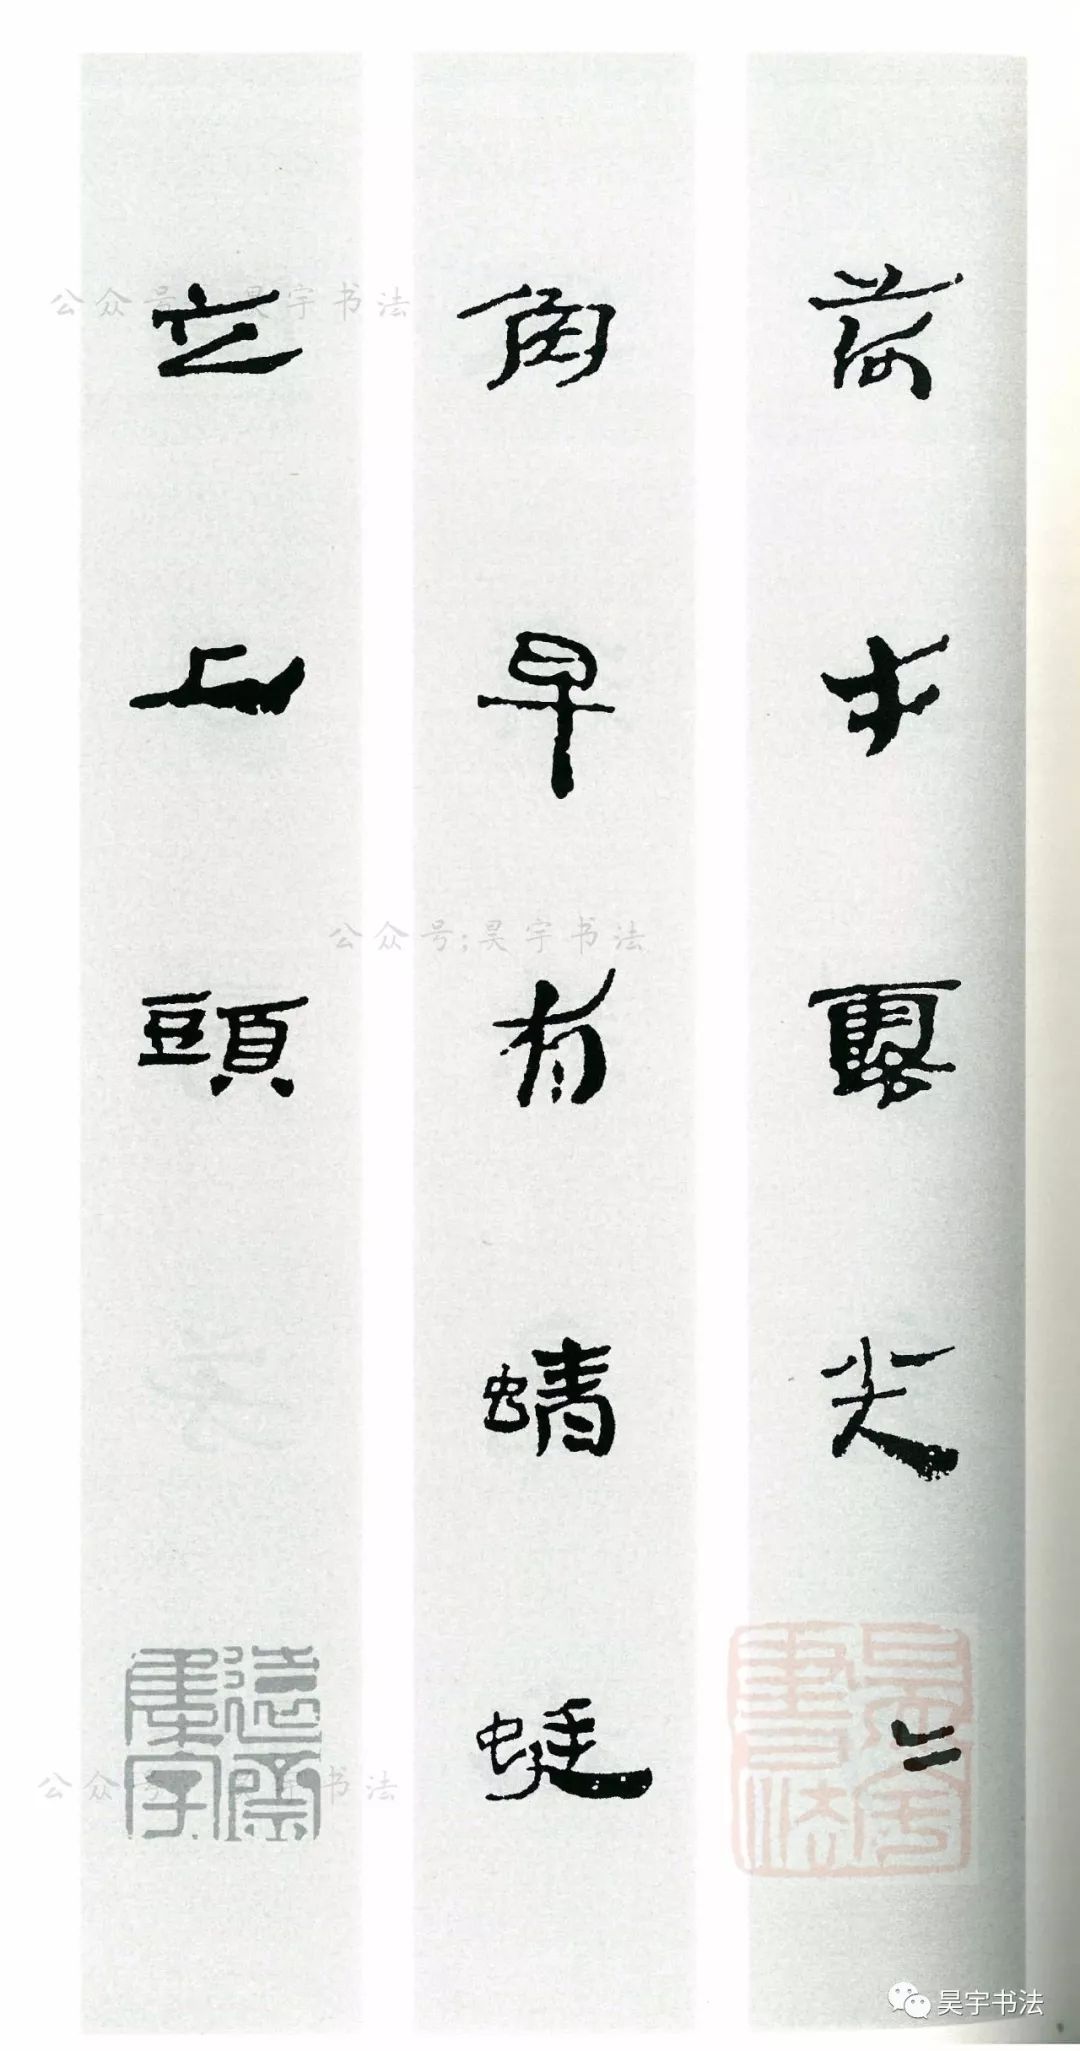 荷才露尖〻
角早有蜻蜓
立上頭
公众号:昊宇书法
公众号:昊宇书法
公众号:昊宇书法
集字
昊宇書法
昊宇书法